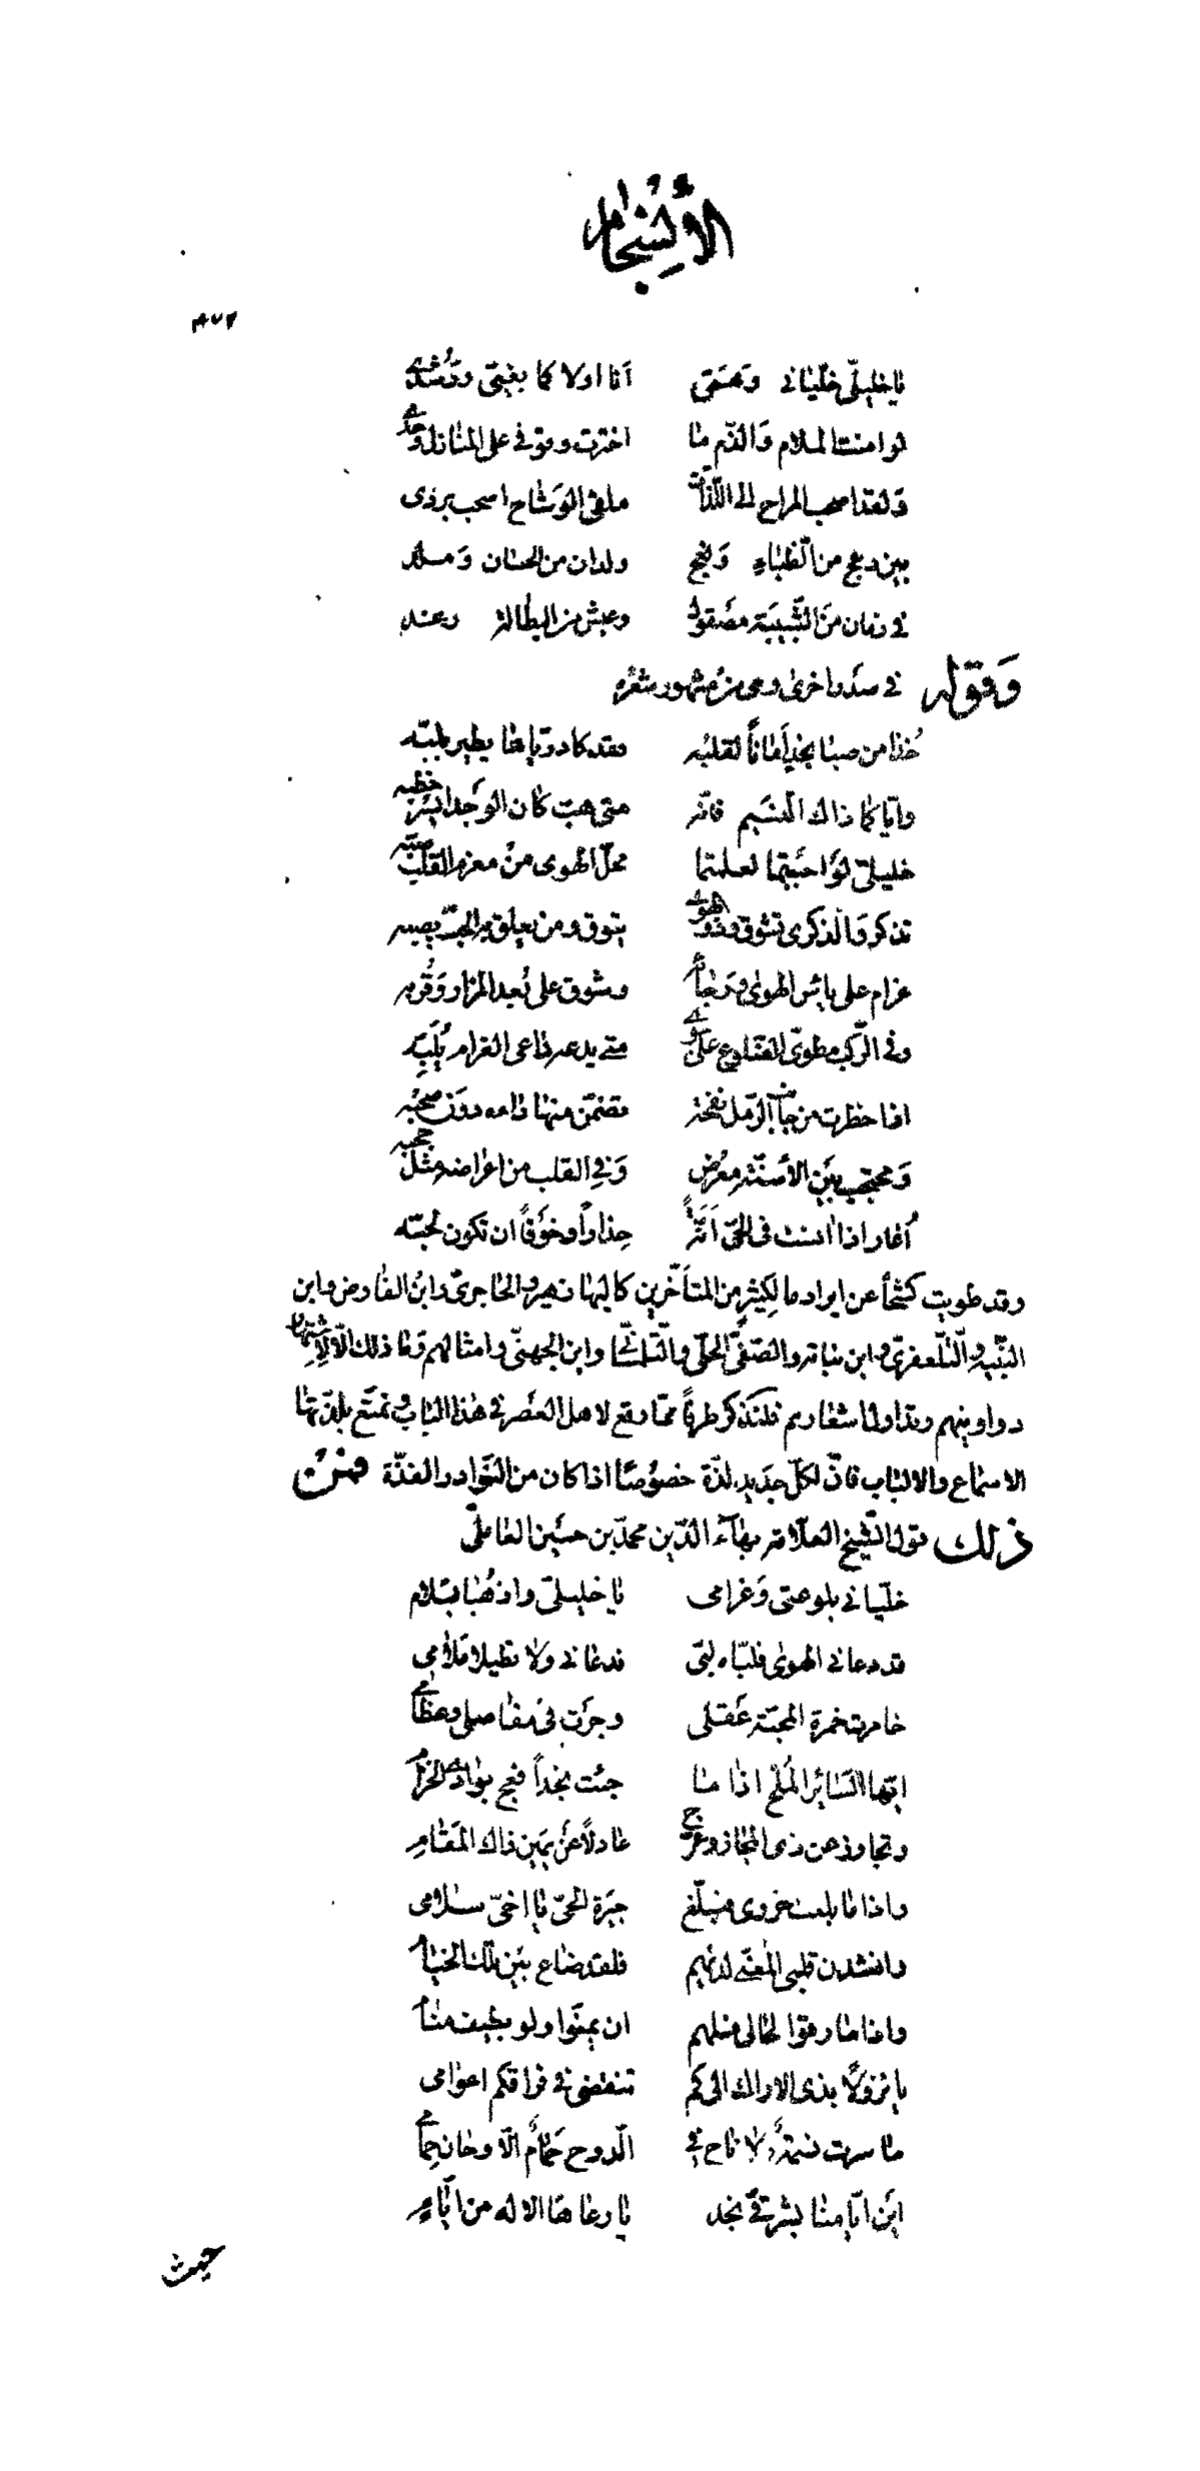 الأنسجام
٤٧٢
يا خليلي خلياني وهمي انا اولا كما بغيتي ورشدي
لو امنت الملام والذم ما اخترت وقوفي على المنازل وحدي
ولقد اصحب المراح الى اللذات ملقى الوشاح اسحب بردى
بين دعج من الظباء ولدان من الحسان ومــلد
في زمان من الشبيبة مصقول وعيش من البطالة رغد
وقوله في صدر اخرى وهي من مشهور شعره
خذا من صبا نجد اماناً لقلبه فقد كاد ريّاها يطير بلبّه
وايّاكما ذاك النسيم فانّه متى هبّ كان الوجد ايسر خطبه
خليليّ لو احببتما لعلمتما محلّ الهوى من مغرم القلب صبّه
تذكر والذكرى تشوق وذو الهوى يتوق ومن يعلق به الحبّ يصبه
غرام على يأس الهوى ورجائه وشوق على بُعد المزار وقُربه
وفي الركب مطويّ الضلوع على جوى متى يدعه داعي الغرام يُلبّه
اذا خطرت من جانب الرّمل نفحة تضمّن منها داءه دون صحبه
ومحتجب بين الأسنّة معرض وفي القلب من اعراضه مثل حجبه
أغار اذا انست في الحيّ انّة حذاراً وخوفاً ان تكون لحبّه
وقد طويت كشحاً عن ايراد ما لكثير من المتأخّرين كالبهاء زهير والحاجريّ وابن الفارض وابن
النبيه والتلعفريّ وابن نباته والصفيّ الحلّي وابن الجهنيّ وامثالهم وما ذلك الّا لاشتهار
دواوينهم وتداول اشعارهم فلنذكر طرفاً ممّا وقع لاهل العصر في هذا الباب ونمتّع بلذّتها
الاسماع والالباب فانّ لكلّ جديد لذّة خصوصًا اذا كان من النوادر الفذّة فمن
ذلك قول الشيخ العلّامة بهاء الدّين محمّد بن حسين العامليّ
خلّياني بلوعتي وغرامي يا خليليّ واذهبا بسلام
قد دعاني الهوى فلبّاه لبّي فدعاني ولا تطيلا ملامي
خامرت خمرة المحبّة عقلي وجرت في مفاصلي وعظامي
ايّها السائر الملحّ اذا ما جئت نجداً فعج بوادي الخزام
وتجاوز عن ذي المجاز وعرّج عادلاً عن يمين ذاك المقام
واذا ما بلغت حزوى فبلّغ جيرة الحيّ يا اخيّ سلامي
وانشدن قلبي المعنّى لديهم فلقد ضاع بين تلك الخيام
واذا ما رقوا لحالي فسلهم ان يمنّوا ولو بطيف منام
يا نزولاً بذي الاراك الى كم تنقضي في فراقكم اعوامي
ما سرت نسمة ولا ناح في الدّوح حمام الّا وحان حمامي
اين ايّامنا بشرقيّ نجد يا رعاها الاله من ايّام
حيث